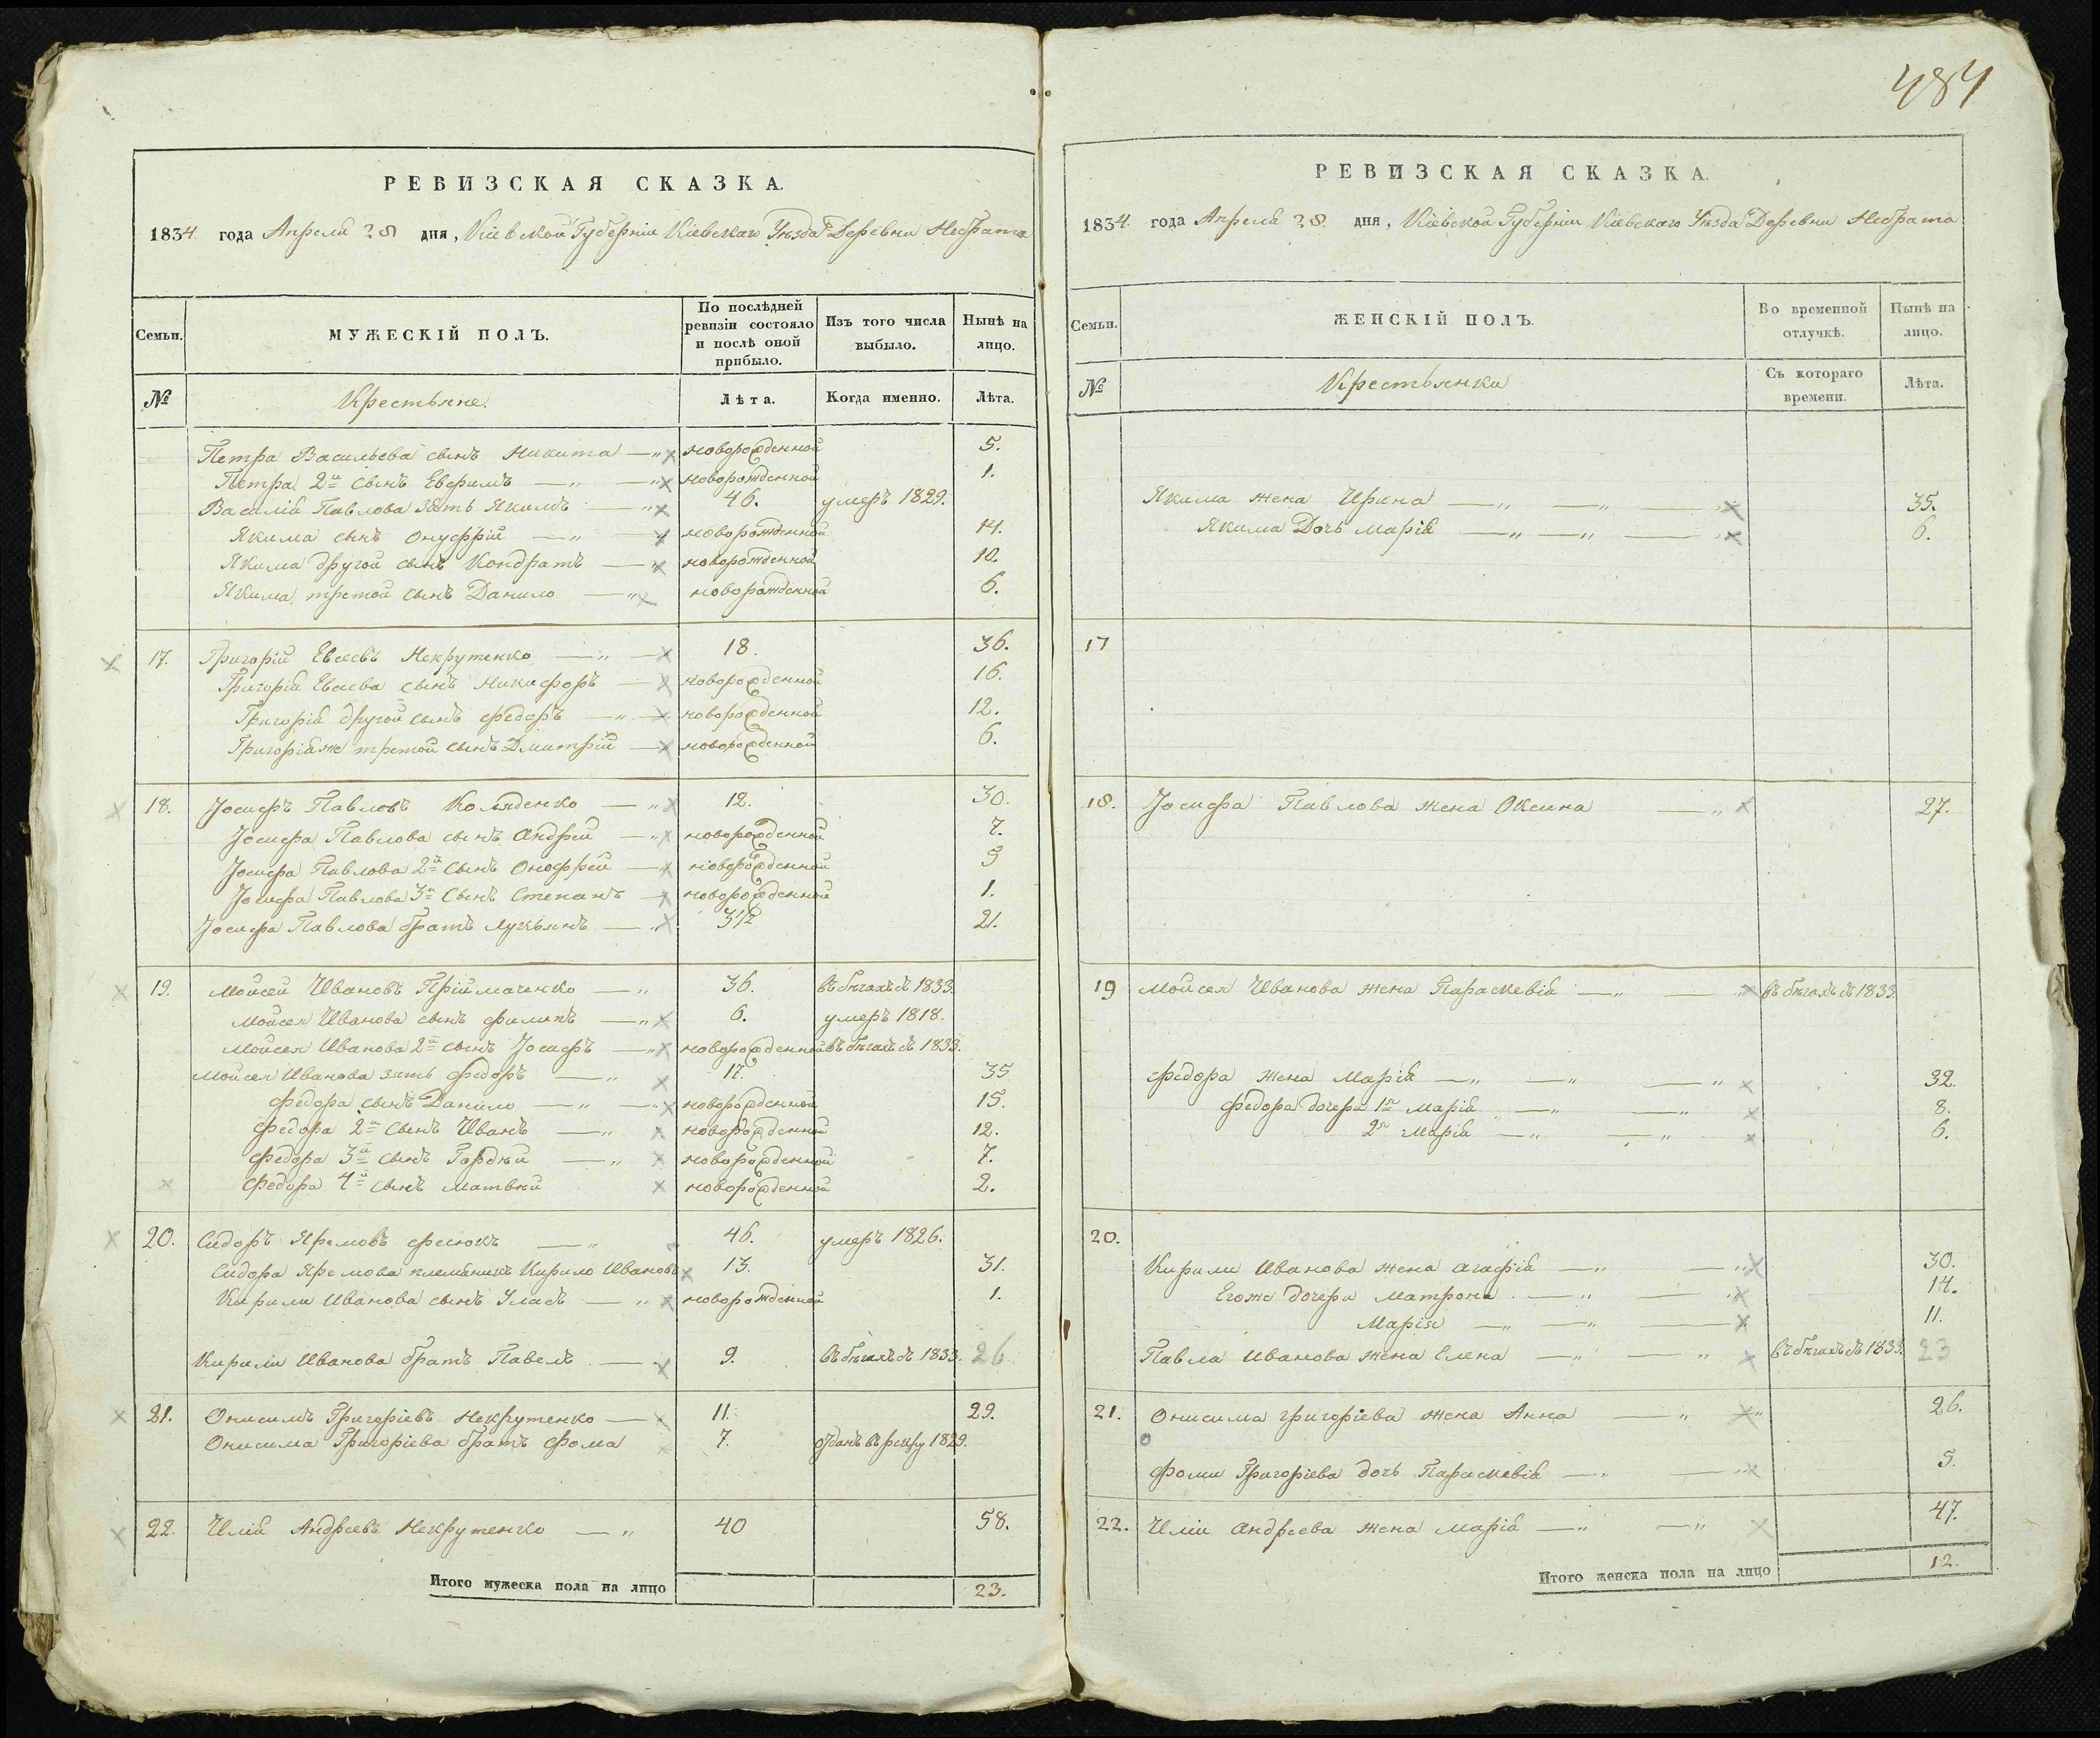 484
РЕВИЗСКАЯ СКАЗКА.
1834 года Апреля 28 дня, Кіевской Губерніи Кіевскаго Уѣзда Деревни Небрата
Семьи.
МУЖЕСКІЙ ПОЛЪ.
По послѣдней ревизіи состояло и послѣ оной прибыло.
Изъ того числа выбыло.
Нынѣ на лицо.
№
Крестьяне.
Лѣта.
Когда именно.
Лѣта.
Петра Васильева сынъ Никита — новорожденной 5.
Петра 2й сынъ Евфимъ — новорожденной 1.
Василія Павлова зять Якимъ — 46. умеръ 1829.
Якима сынъ Онуфрій — новорожденной 14.
Якима другой сынъ Кондратъ — новорожденной 10.
Якима третой сынъ Данило — новорожденной 6.
17. Григорій Евсеевъ Некрутенко — 18. 36.
Григорія Евсеева сынъ Никифоръ — новорожденной 16.
Григорія другой сынъ Федоръ — новорожденной 12.
Григорія же третой сынъ Дмитрій — новорожденной 6.
18. Іосифъ Павловъ Коляденко — 12. 30.
Іосифа Павлова сынъ Андрей — новорожденной 7.
Іосифа Павлова 2й сынъ Онофрей — новорожденной 5
Іосифа Павлова 3й сынъ Степанъ — новорожденной 1.
Іосифа Павлова братъ Лукьянъ — 3 1/2 21.
19. Мойсей Ивановъ Пріймаченко — 36. въ бѣгахъ съ 1833.
Мойсея Иванова сынъ Филипъ — 6. умеръ 1818.
Мойсея Иванова 2й сынъ Іосифъ — новорожденной въ бѣгахъ съ 1833.
Мойсея Иванова зять Федоръ — 17. 35
Федора сынъ Данило — новорожденной 15.
Федора 2й сынъ Иванъ — новорожденной 12.
Федора 3й сынъ Гордѣй — новорожденной 7.
Федора 4й сынъ Матвѣй новорожденной 2.
20. Сидоръ Яремовъ Фесюкъ — 46. умеръ 1826.
Сидора Яремова племѣникъ Кирило Ивановъ 13. 31.
Кирили Иванова сынъ Уласъ — новорожденной 1.
Кирили Иванова братъ Павелъ — 9. въ бѣгахъ съ 1833. 26
21. Онисимъ Григоріевъ Некрутенко — 11. 29.
Онисима Григоріева братъ Фома 7. отданъ въ рекру 1829.
22. Илія Андреевъ Некрутенко — 40 58.
Итого мужеска пола на лицо 23.
РЕВИЗСКАЯ СКАЗКА.
1834 года Апреля 28. дня, Кіевской Губерніи Кіевскаго Уѣзда Деревни Небрата
Семьи.
ЖЕНСКІЙ ПОЛЪ.
Во временной отлучкѣ.
Нынѣ на лицо.
№
Крестьянки
Съ котораго времени.
Лѣта.
Якима жена Ирина — 35.
Якима Дочь Марія — 6.
17
18. Іосифа Павлова жена Оксина — 27.
19 Мойсея Иванова жена Параскевія — въ бѣгахъ съ 1833.
Федора жена Марія — 32.
Федора дочери 1я Марія — 8.
2я Марія — 6.
20.
Кирили Иванова жена Агафія — 30.
Егоже дочери Матрона — 14.
Марія — 11.
Павла Иванова жена Елена — въ бѣгахъ съ 1833. 23
21. Онисима Григоріева жена Анна — 26.
Фомы Григоріева дочь Параскевія — 5.
22. Иліи Андреева жена Марія — 47.
Итого женска пола на лицо 12.